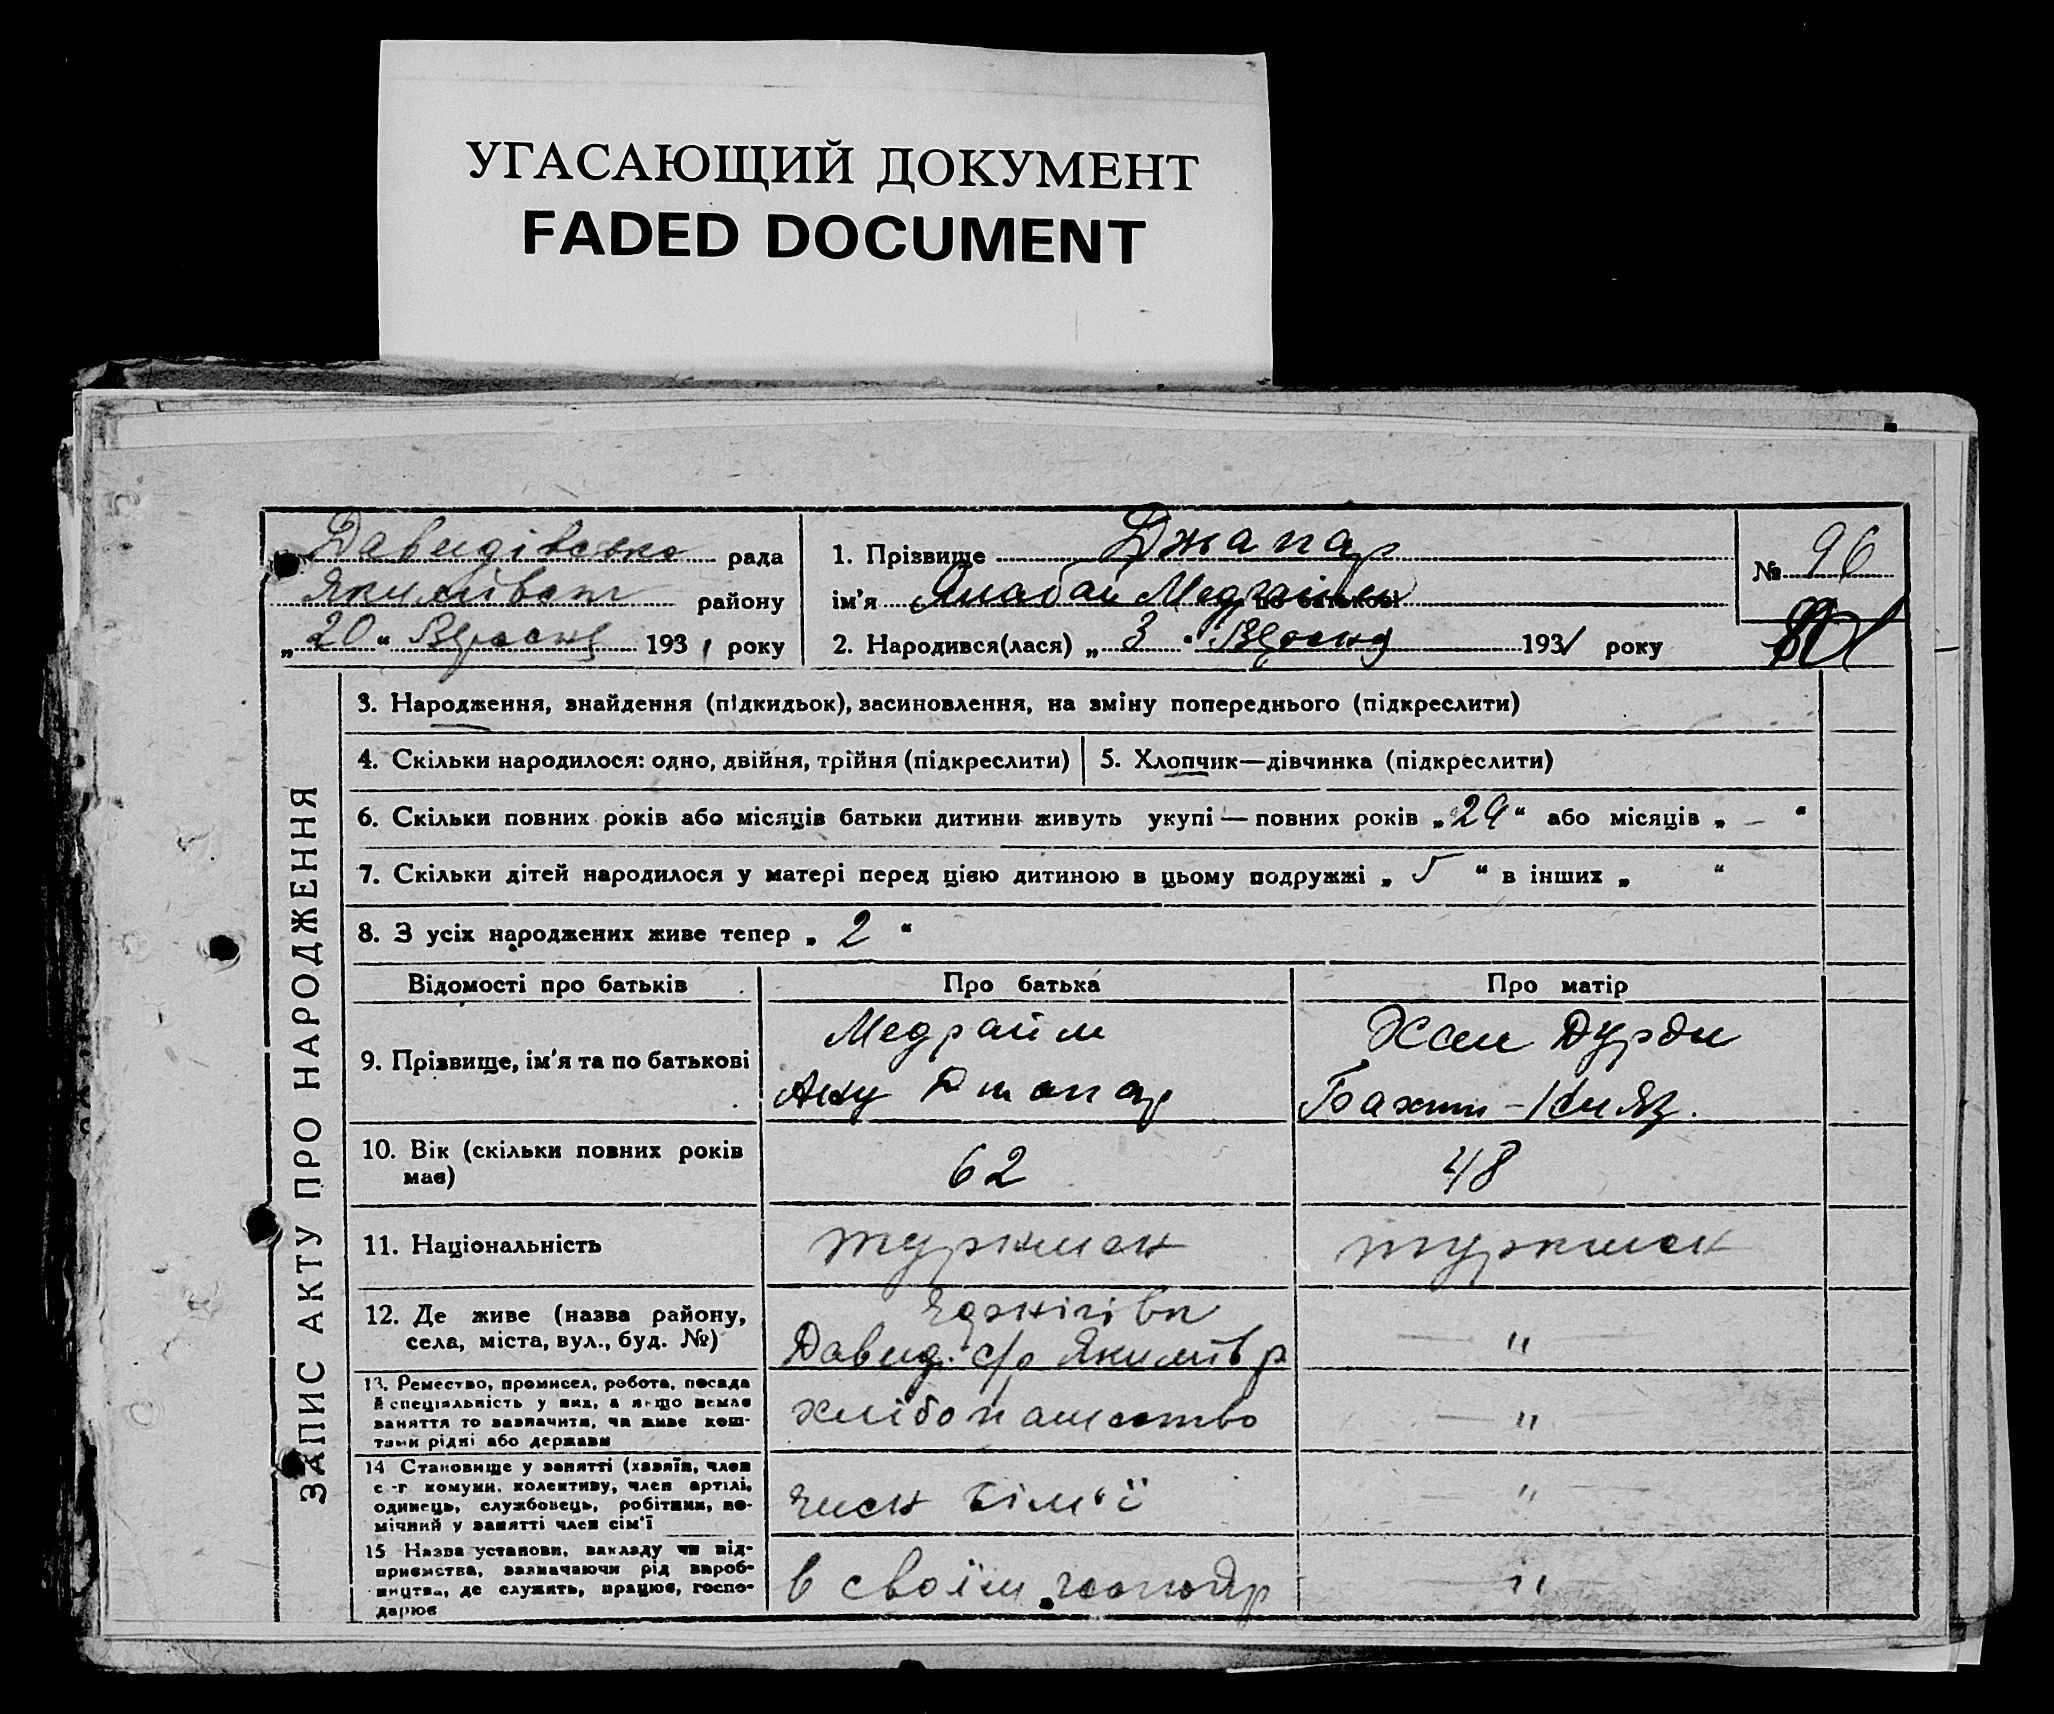 УГАСАЮЩИЙ ДОКУМЕНТ
FADED DOCUMENT
Давидівська рада
Якимівськ району
„20“ Вересня 1931 року
1. Прізвище Джапар
ім'я Янабай Медраїм по батькові
2. Народився(лася) „3“ Вересня 1931 року
№ 96
ЗАПИС АКТУ ПРО НАРОДЖЕННЯ
3. Народження, знайдення (підкидьок), засиновлення, на зміну попереднього (підкреслити)
4. Скільки народилося: одно, двійня, трійня (підкреслити)
5. Хлопчик—дівчинка (підкреслити)
6. Скільки повних років або місяців батьки дитини живуть укупі — повних років „29“ або місяців „ – “
7. Скільки дітей народилося у матері перед цією дитиною в цьому подружжі „ 5 “ в інших „ “
8. З усіх народжених живе тепер „ 2 “
Відомості про батьків Про батька Про матір
9. Прізвище, ім'я та по батькові
Медраїм
Джапар
Хан Дурди
Бахти-
10. Вік (скільки повних років має) 62 48
11. Національність туркмен туркмен
12. Де живе (назва району, села, міста, вул., буд. №)
Давид. с/р Якимів р
— " —
13. Ремество, промисел, робота, посада й спеціяльність у них, а якщо немає заняття то зазначити, чи живе коштами рідні або держави
хлібопашество
— " —
14 Становище у занятті (хазяїн, член с.-г. комуни, колективу, член артілі, одинець, службовець, робітник, помічний у занятті член сім'ї
член сім'ї
— " —
15 Назва установи, закладу чи підприємства, зазначаючи рід виробництва, де служить, працює, господарює
в своїм господр
— " —